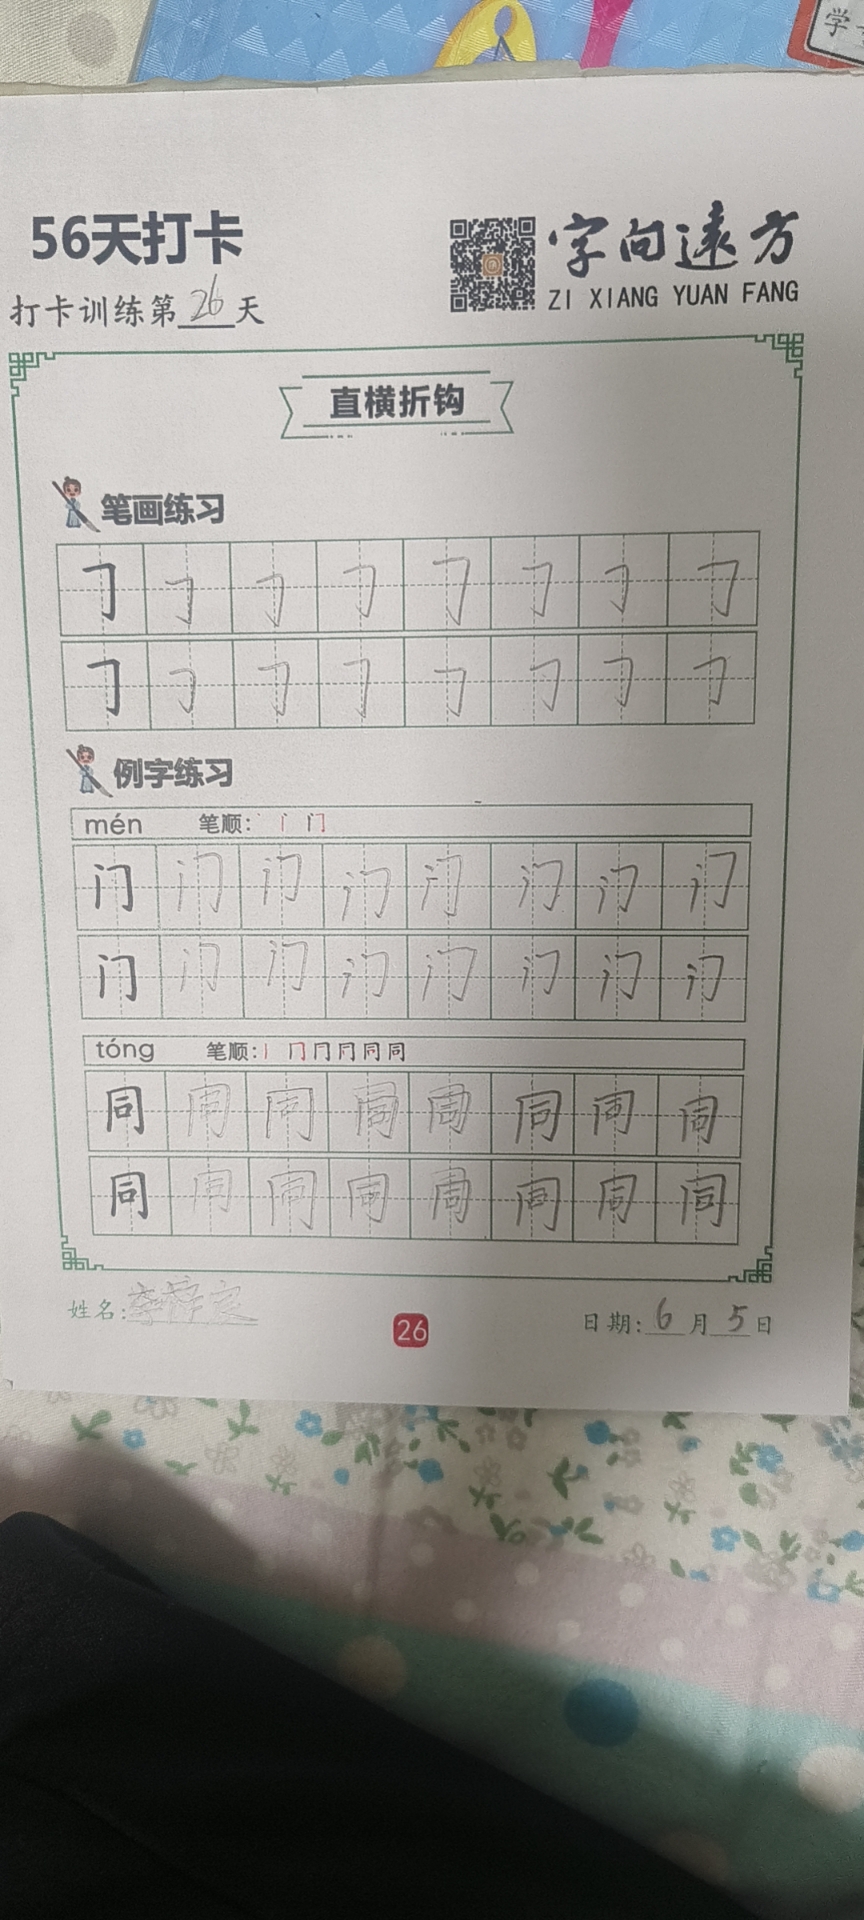 学
56天打卡
字向遠方
ZI XIANG YUAN FANG
打卡训练第26天
直横折钩
笔画练习
㇆ ㇆ ㇆ ㇆ ㇆ ㇆ ㇆ ㇆
㇆ ㇆ ㇆ ㇆ ㇆ ㇆ ㇆ ㇆
例字练习
mén 笔顺: 门
门 门 门 门 门 门 门 门
门 门 门 门 门 门 门 门
tóng 笔顺: 丨 冂 冂 同 同
同 同 同 同 同 同 同 同
同 同 同 同 同 同 同 同
姓名:
26
日期: 6月5日